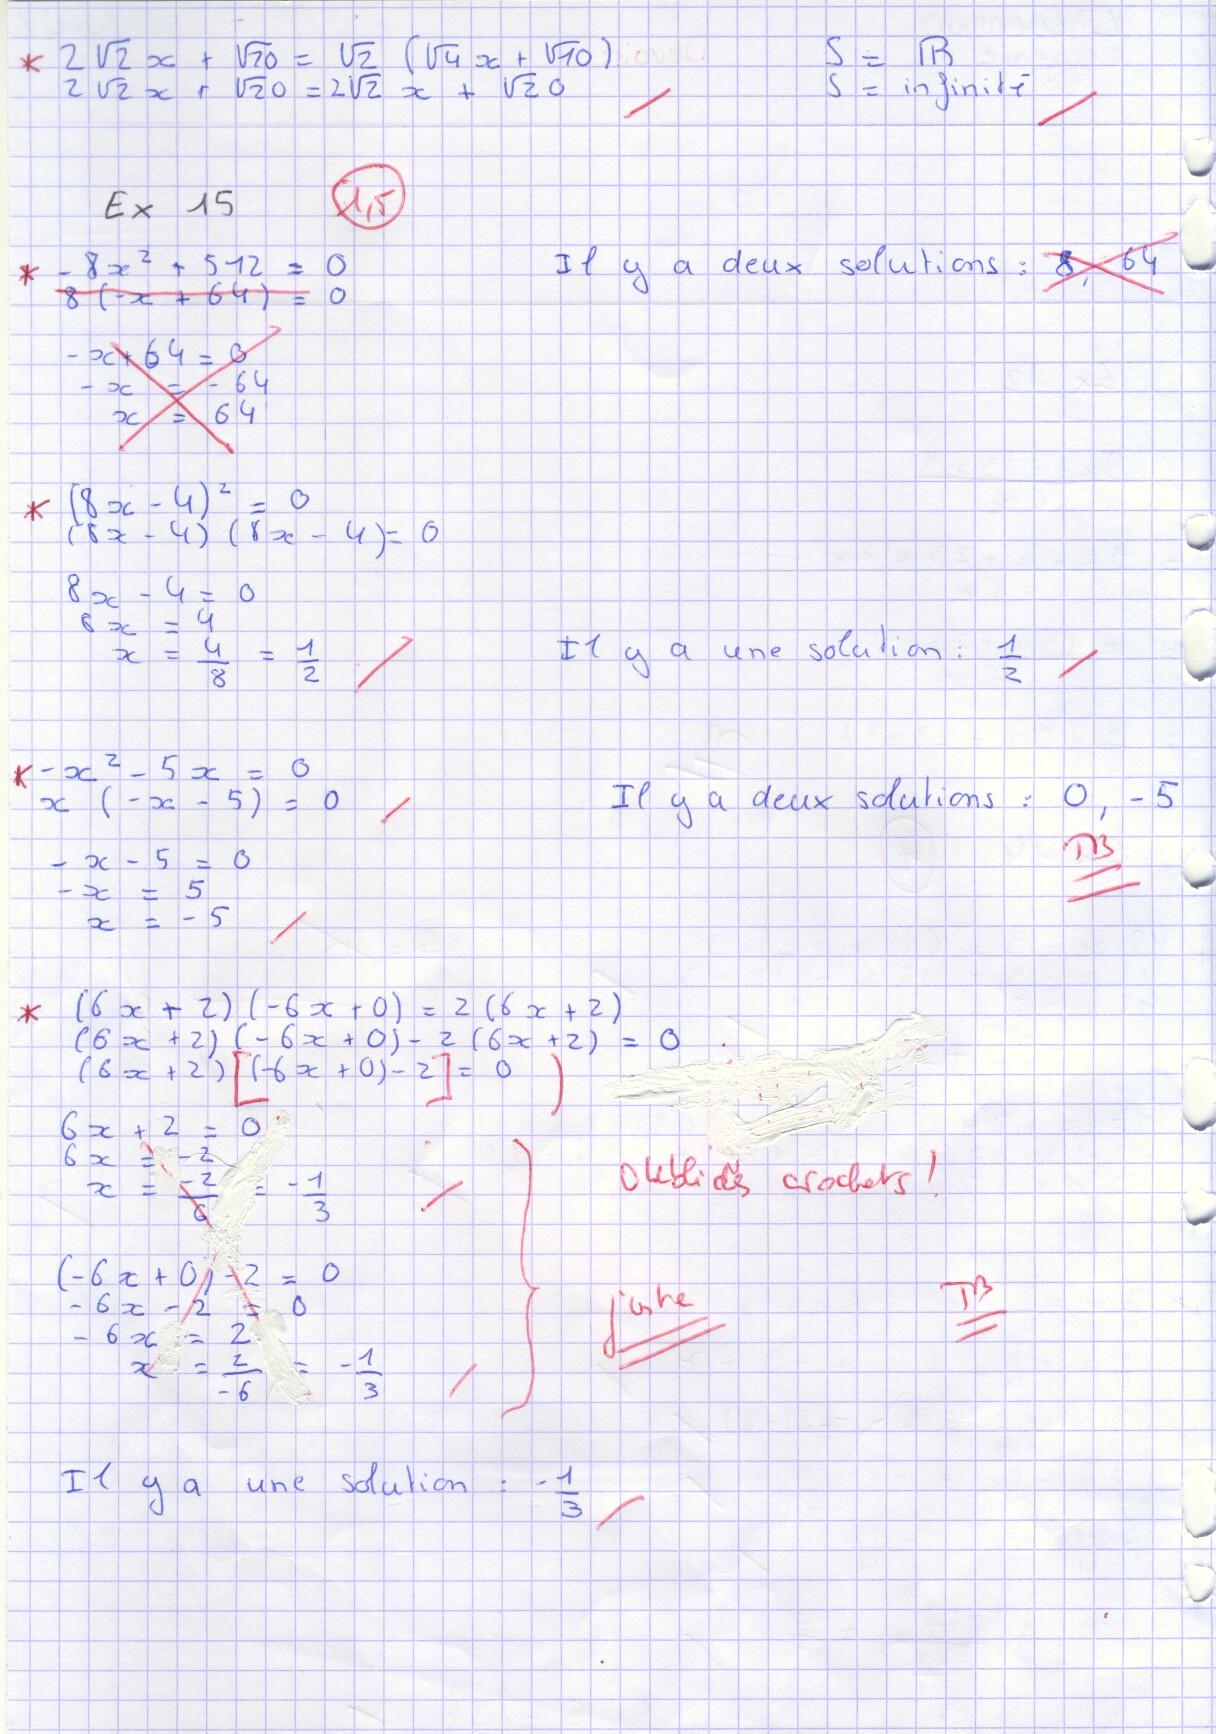 * 2√2 x + √20 = √2 (√4 x + √10)   S = ℝ
2√2 x + √20 = 2√2 x + √20   S = infinité
Ex 15   1,5
* -8x² + 512 = 0   Il y a deux solutions : 8, 64
8(-x + 64) = 0
-x + 64 = 0
-x = -64
x = 64
* (8x - 4)² = 0
(8x - 4) (8x - 4) = 0
8x - 4 = 0
8x = 4
x = 4/8 = 1/2   Il y a une solution : 1/2
* -x² - 5x = 0
x (-x - 5) = 0   Il y a deux solutions : 0, -5
TB
-x - 5 = 0
-x = 5
x = -5
* (6x + 2) (-6x + 0) = 2 (6x + 2)
(6x + 2) (-6x + 0) - 2 (6x + 2) = 0
(6x + 2) [(-6x + 0) - 2] = 0 )
6x + 2 = 0
6x = -2
x = -2/6 = -1/3
crochets !
(-6x + 0) - 2 = 0
-6x - 2 = 0   juste   TB
-6x = 2
x = 2/-6 = -1/3
Il y a une solution : -1/3